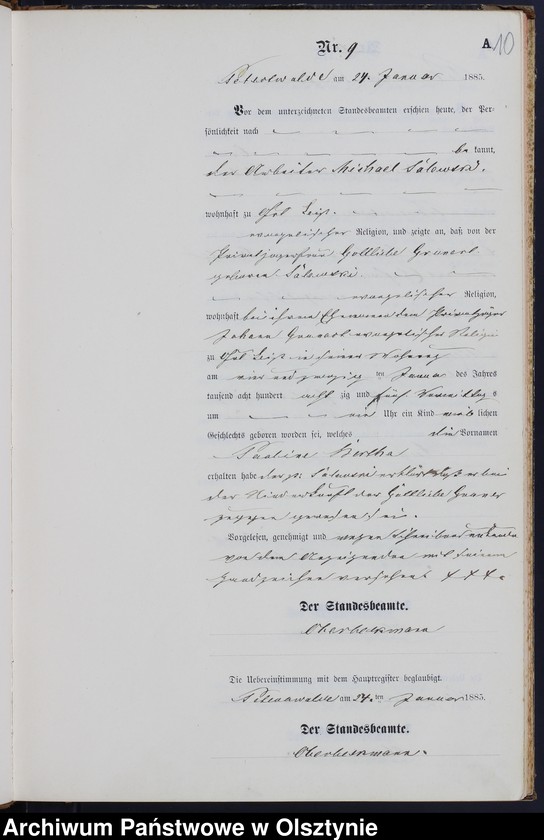 Nr. 9
A. 10
am 24. Januar 1885.
Vor dem unterzeichneten Standesbeamten erschien heute, der Per-
sönlichkeit nach
be kannt,
der Arbeiter Michael Salewski.
wohnhaft zu
evangelischer Religion, und zeigte an, daß von der
Gottliebe
geborene Salewski
evangelischer Religion,
wohnhaft bei ihrem Ehemanne dem
evangelischer Religion
zu in seiner Wohnung
am vier und zwanzig ten Januar des Jahres
tausend acht hundert acht zig und fünf Vormittags
um Uhr ein Kind weib lichen
Geschlechts geboren worden sei, welches die Vornamen
Pauline Bertha
erhalten habe der p. Salewski erklärt daß er bei
der Niederkunft der Gottliebe
zugegen gewesen sei.
Vorgelesen, genehmigt und wegen
von dem Anzeigenden mit seinem
Handzeichen versehen † † †.
Der Standesbeamte.
Oberbeckmann
Die Uebereinstimmung mit dem Hauptregister beglaubigt.
am 24. ten Januar 1885.
Der Standesbeamte.
Oberbeckmann.
Archiwum Państwowe w Olsztynie